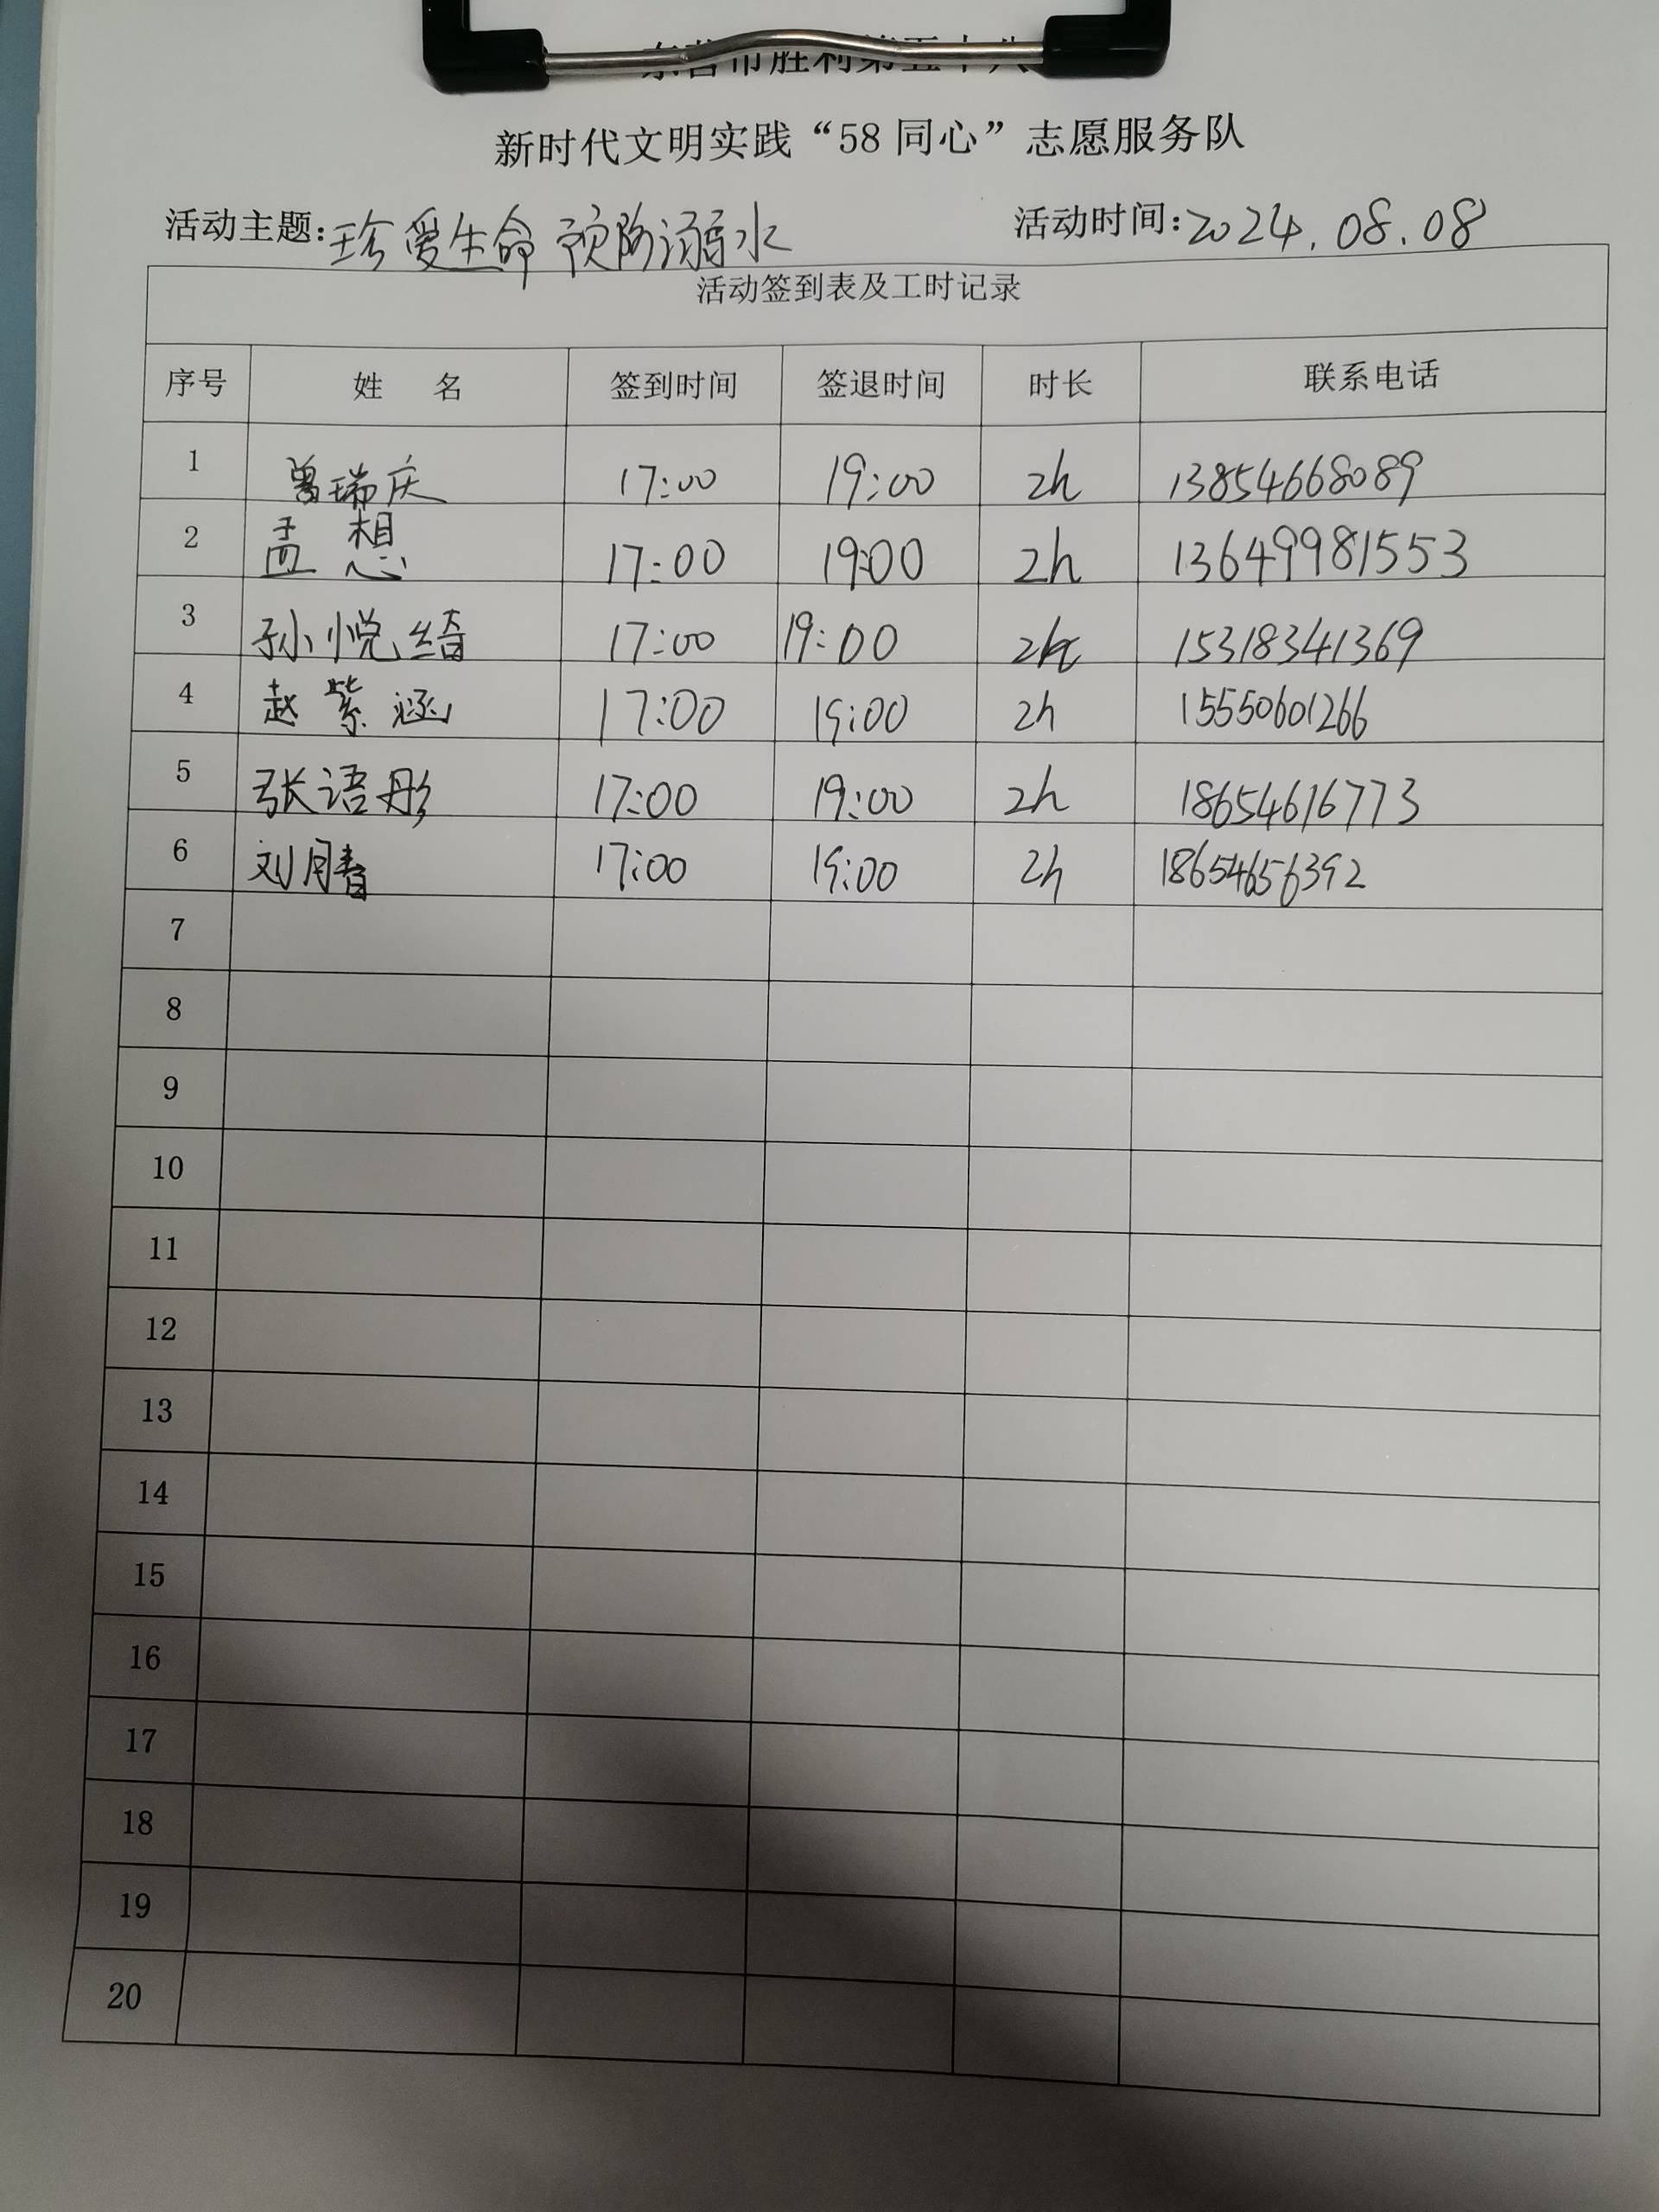 东营市胜利第五十八
新时代文明实践“58同心”志愿服务队
活动主题:珍爱生命 预防溺水 活动时间:2024.08.08
活动签到表及工时记录
序号 姓 名 签到时间 签退时间 时长 联系电话
1 曾瑞庆 17:00 19:00 2h 13854668089
2 孟想 17:00 19:00 2h 13649981553
3 孙悦绮 17:00 19:00 2h 15318341369
4 赵紫涵 17:00 19:00 2h 15550601266
5 张语彤 17:00 19:00 2h 18654616773
6 刘月春 17:00 19:00 2h 18654656392
7
8
9
10
11
12
13
14
15
16
17
18
19
20